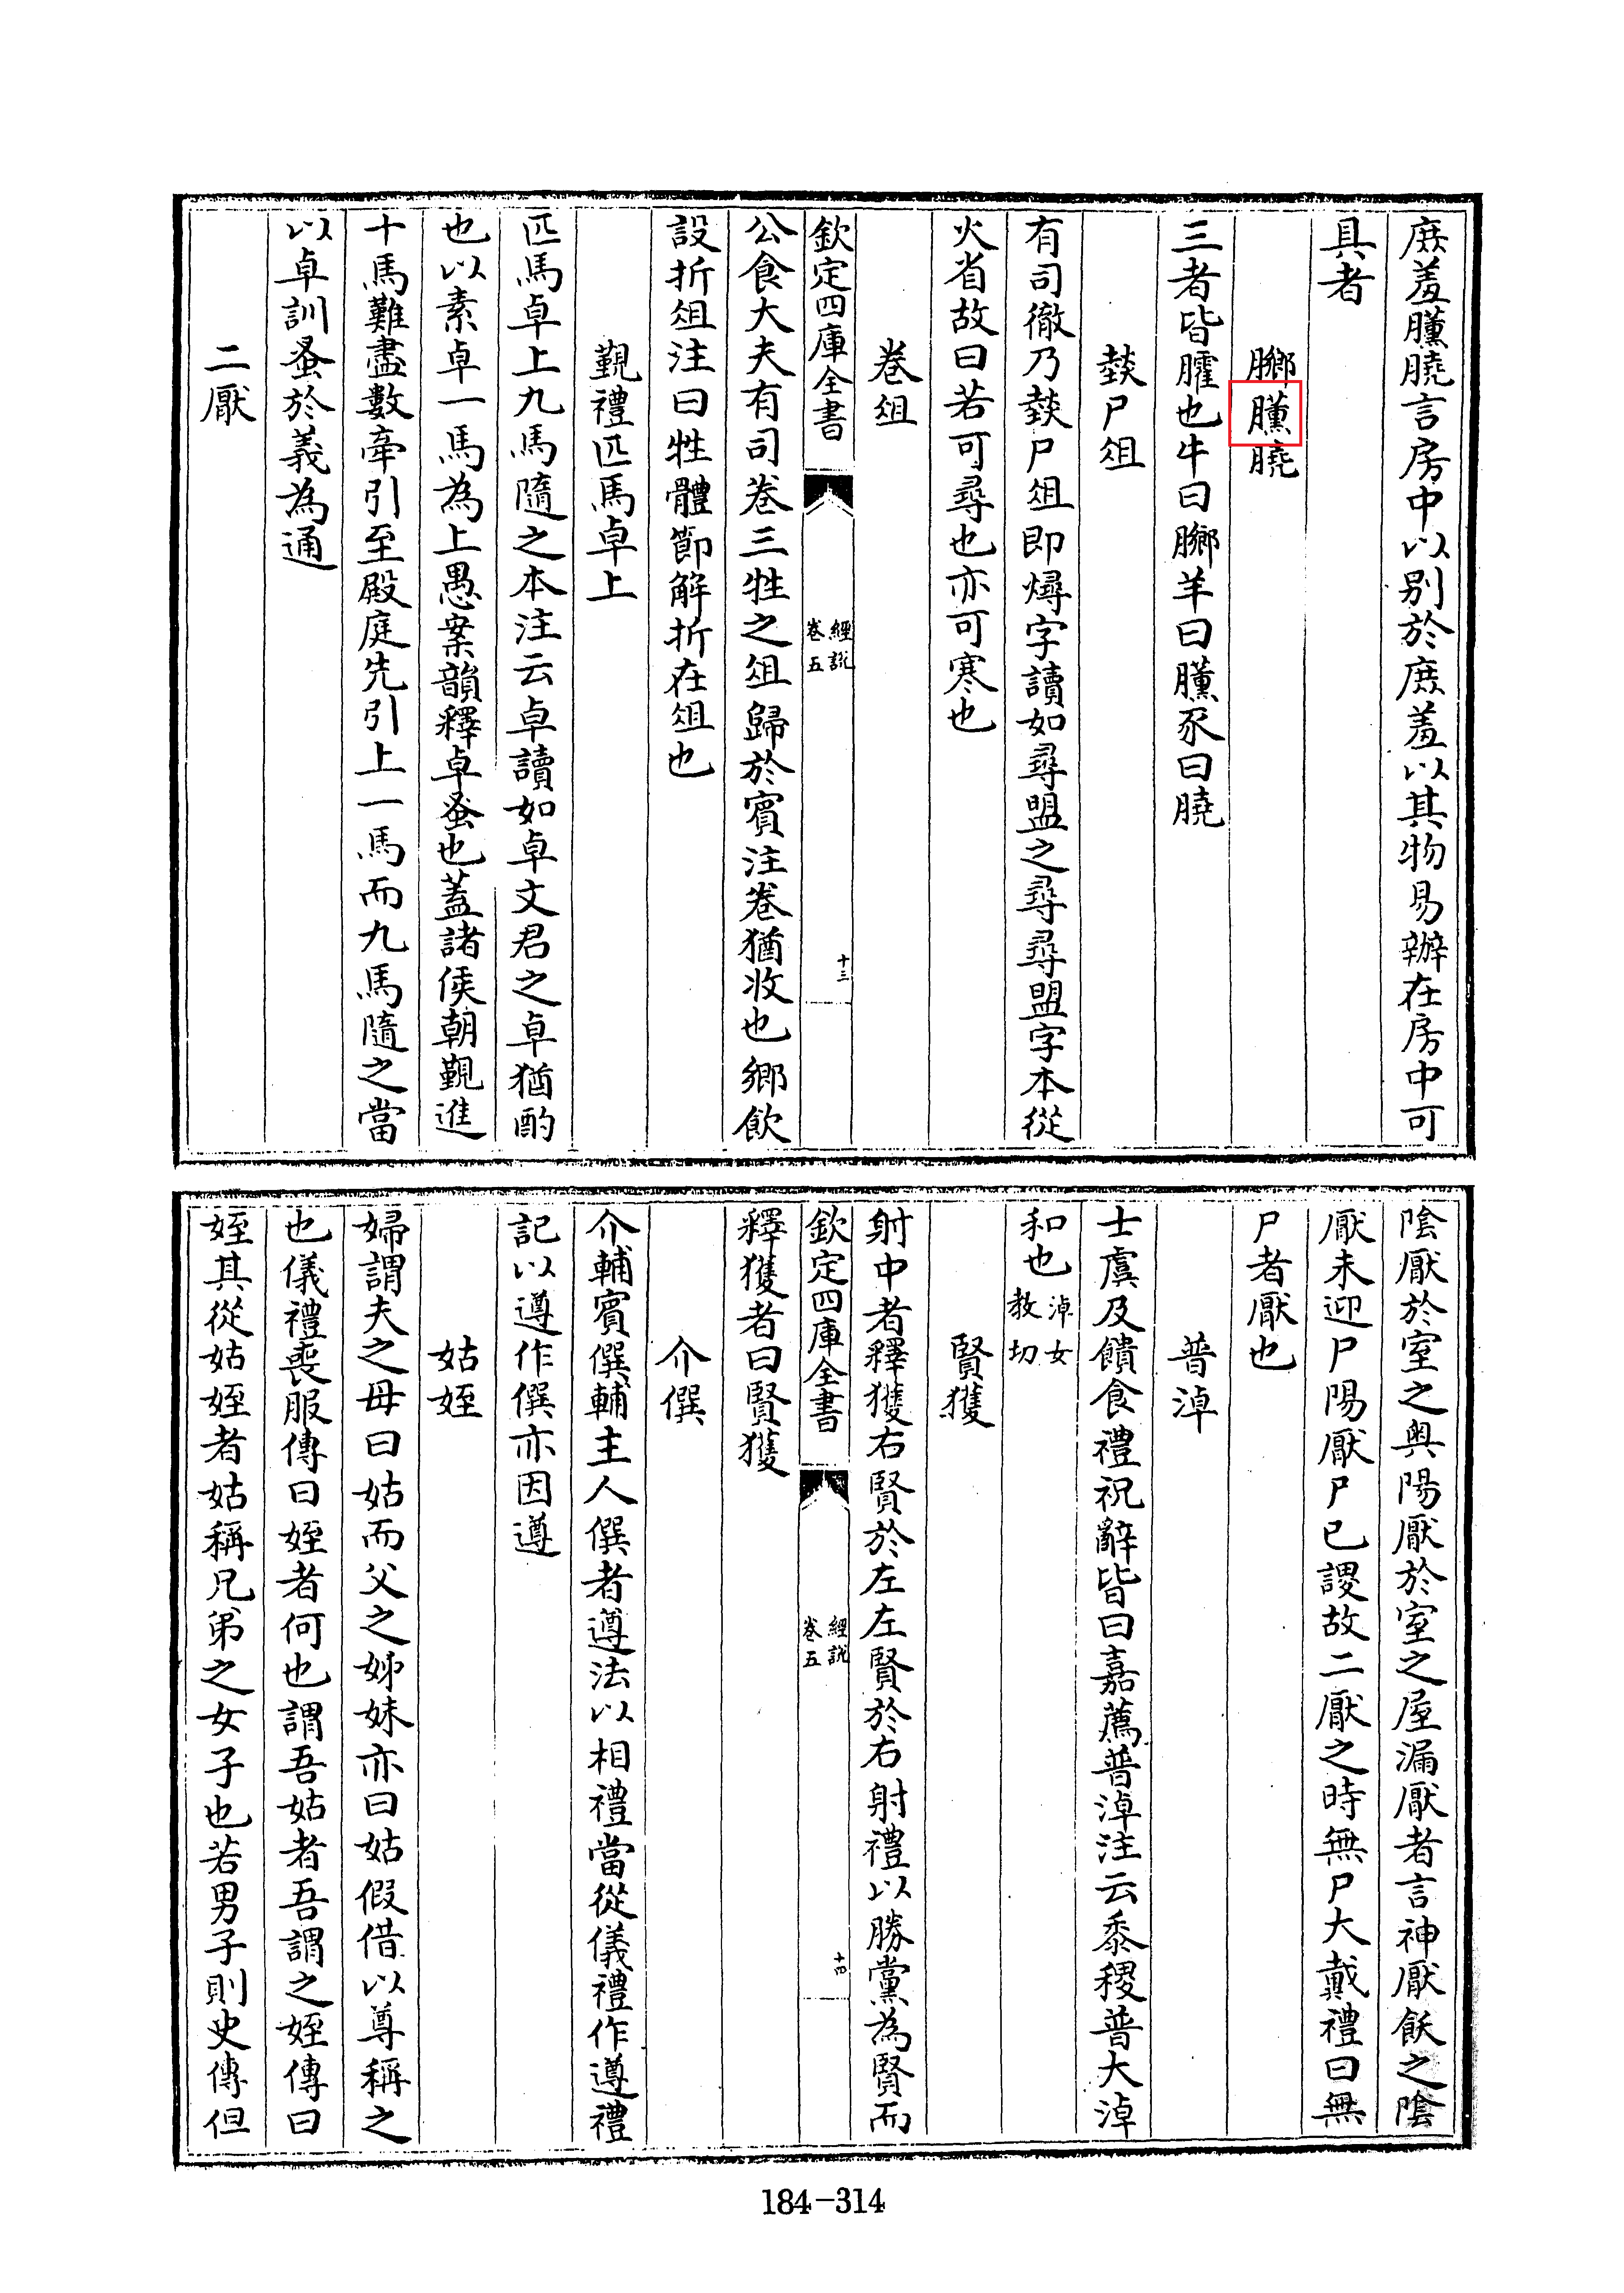 庶羞臐膮言房中以别於庶羞以其物易辦在房中可
具者
膷臐膮
三者皆臛也牛曰膷羊曰臐豕曰膮
燅尸俎
有司徹乃燅尸俎即燖字讀如尋盟之尋尋盟字本從
火省故曰若可尋也亦可寒也
卷俎
欽定四庫全書
經說
卷五
十三
公食大夫有司卷三牲之俎歸於賓注卷猶收也鄉飲
設折俎注曰牲體節解折在俎也
覲禮匹馬卓上
匹馬卓上九馬隨之本注云卓讀如卓文君之卓猶酌
也以素卓一馬為上愚案韻釋卓蚤也蓋諸侯朝覲進
十馬難盡數牽引至殿庭先引上一馬而九馬隨之當
以卓訓蚤於義為通
二厭
陰厭於室之奥陽厭於室之屋漏厭者言神厭飫之陰
厭未迎尸陽厭尸已謖故二厭之時無尸大戴禮曰無
尸者厭也
普淖
士虞及饋食禮祝辭皆曰嘉薦普淖注云黍稷普大淖
和也淖女
教切
賢獲
射中者釋獲右賢於左左賢於右射禮以勝黨為賢而
欽定四庫全書
經說
卷五
十四
釋獲者曰賢獲
介僎
介輔賓僎輔主人僎者遵法以相禮當從儀禮作遵禮
記以遵作僎亦因遵
姑姪
婦謂夫之母曰姑而父之姊妹亦曰姑假借以尊稱之
也儀禮喪服傳曰姪者何也謂吾姑者吾謂之姪傳曰
姪其從姑姪者姑稱兄弟之女子也若男子則史傳但
184-314